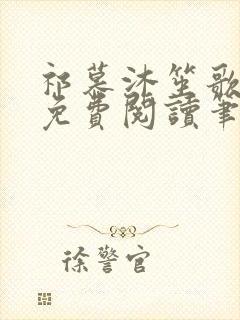 祁慕沐笙歌
免費閱讀筆
徐警官